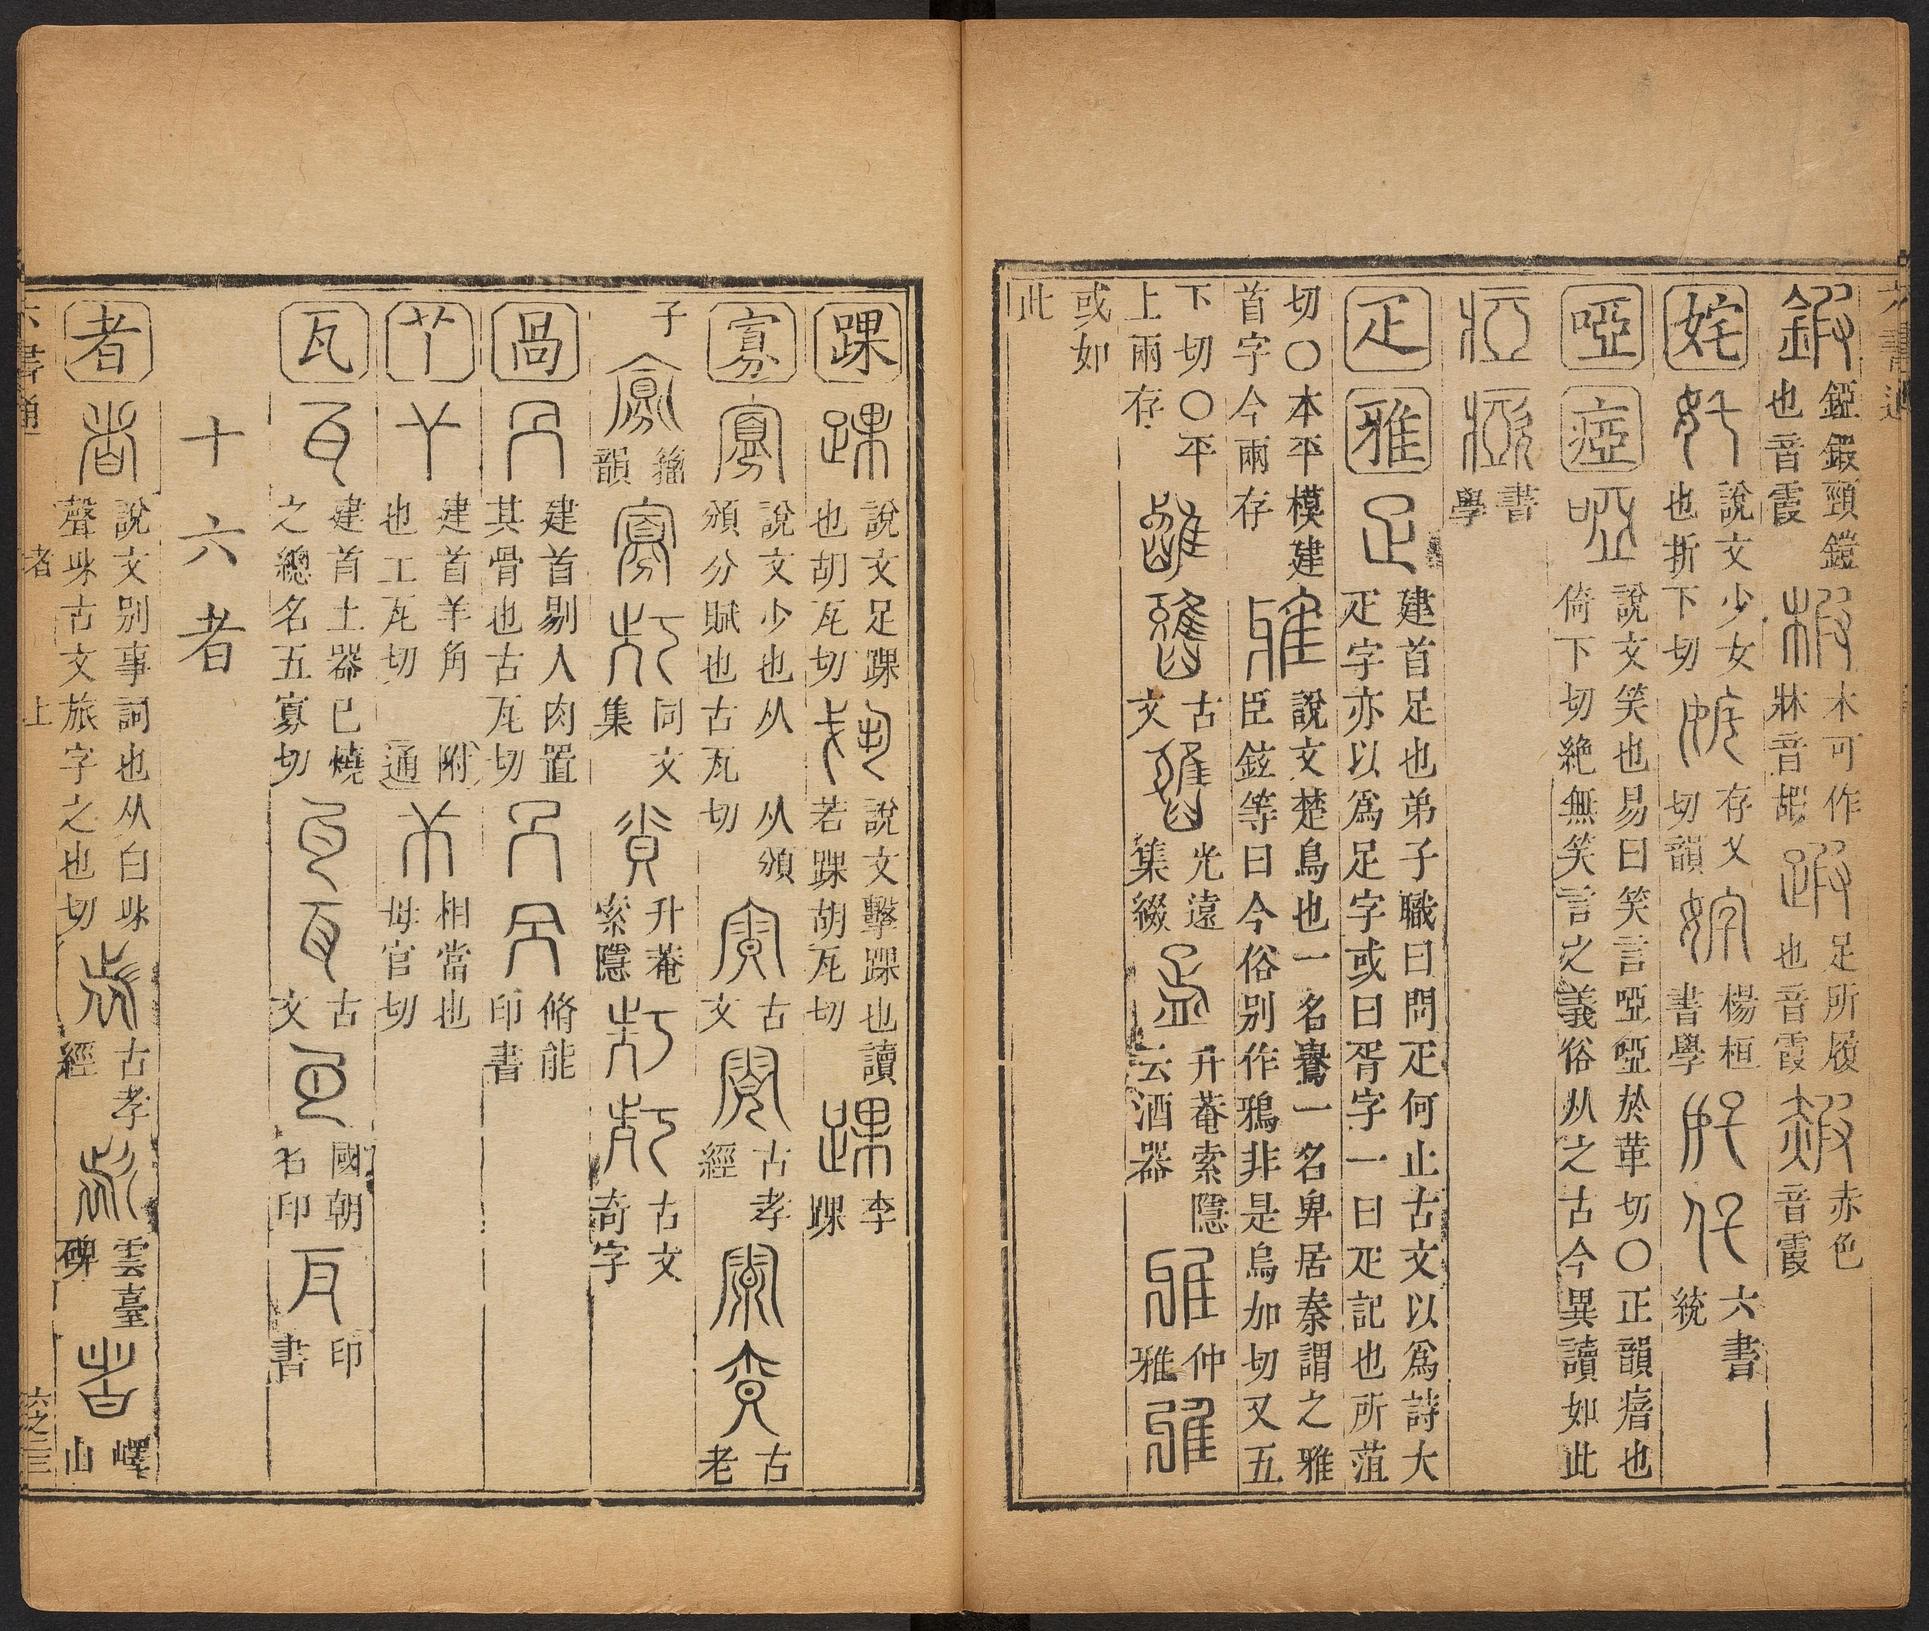 錏鍛頸鎧也音霞 木可作牀音嘏 足所履也音霞 赤色音霞
姹 說文少女也折下切 存乂切韻 楊桓書學 六書統
啞 瘂 說文笑也易曰笑言啞啞於革切〇正韻瘖也倚下切絶無笑言之義俗从之古今異讀如此
書學
疋 雅 建首足也弟子職曰問疋何止古文以爲詩大疋字亦以爲足字或曰胥字一曰疋記也所菹
切〇本平模建首字今兩存 說文楚鳥也一名鸒一名卑居秦謂之雅臣鉉等曰今俗別作鴉非是烏加切又五
下切〇平上兩存 古文 光遠集綴 升菴索隱云酒器 仲雅
或如此
踝 說文足踝也胡瓦切 說文擊踝也讀若踝胡瓦切 李踝
寡 說文少也从从頒頒分賦也古瓦切 古文 古孝經 古老
子 籀韻 同文集 升菴索隱 古文奇字
咼 建首剔人肉置其骨也古瓦切 脩能印書
丫 建首羊角也工瓦切 附通 相當也母官切
瓦 建首土器已燒之總名五寡切 古文 國朝名印 印書
十六者
者 說文別事詞也从白聲古文旅字之也切 古孝經 雲臺碑 嶧山
六書通 者 上